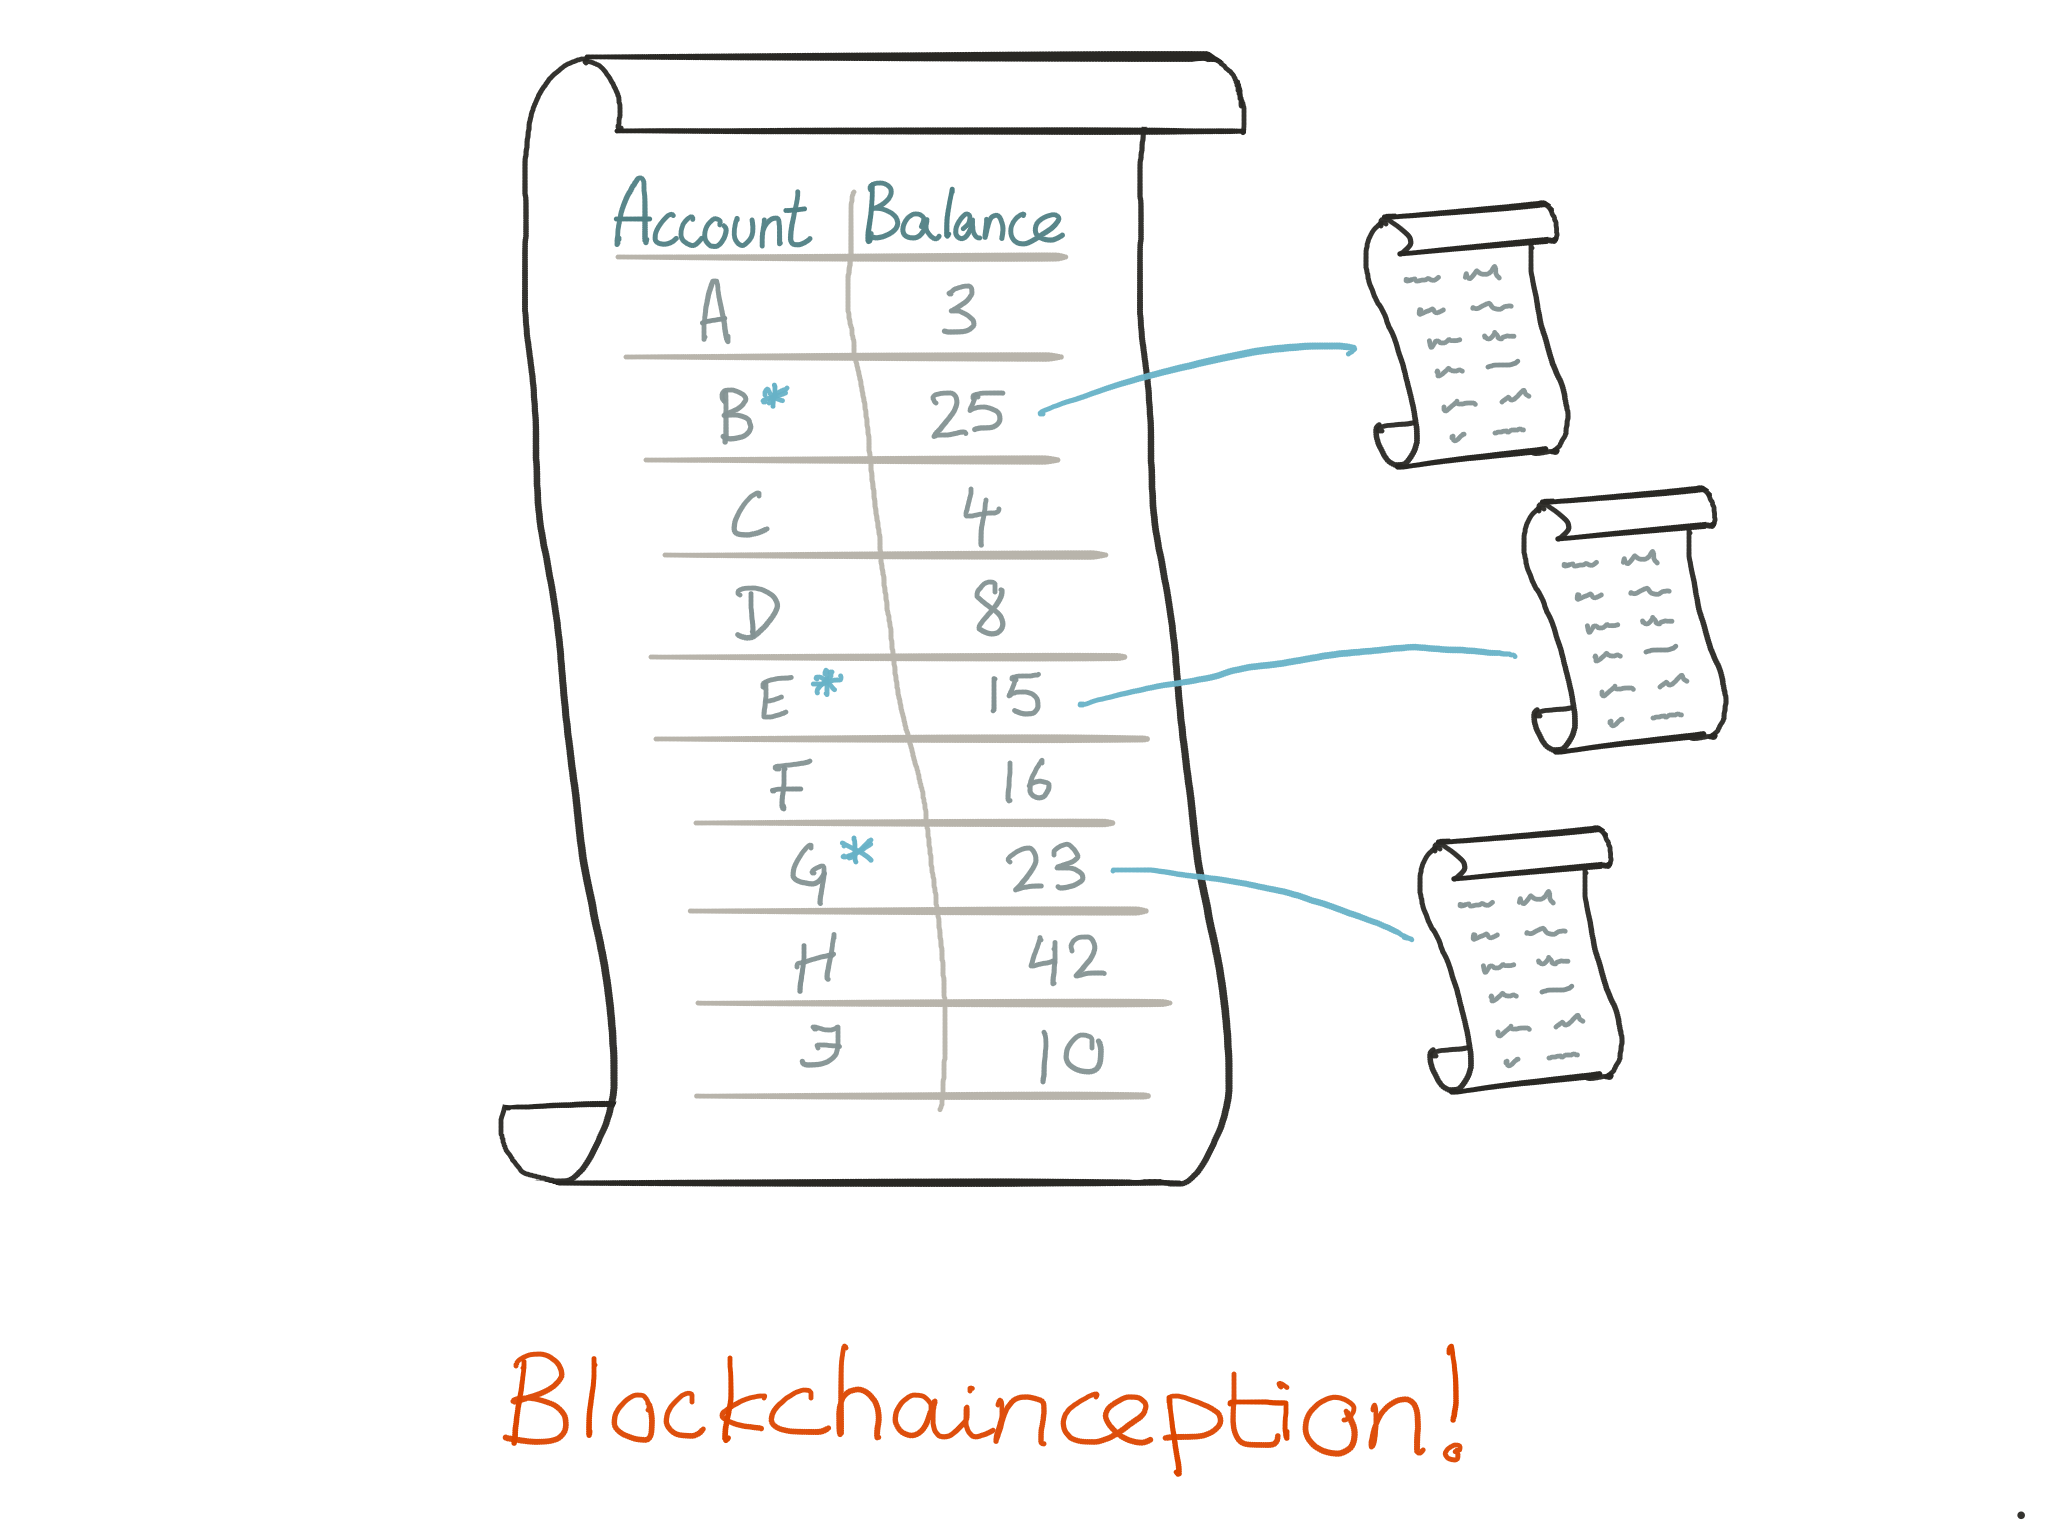 Account Balance
A 3
B* 25
C 4
D 8
E* 15
F 16
G* 23
H 42
J 10
Blockchainception!